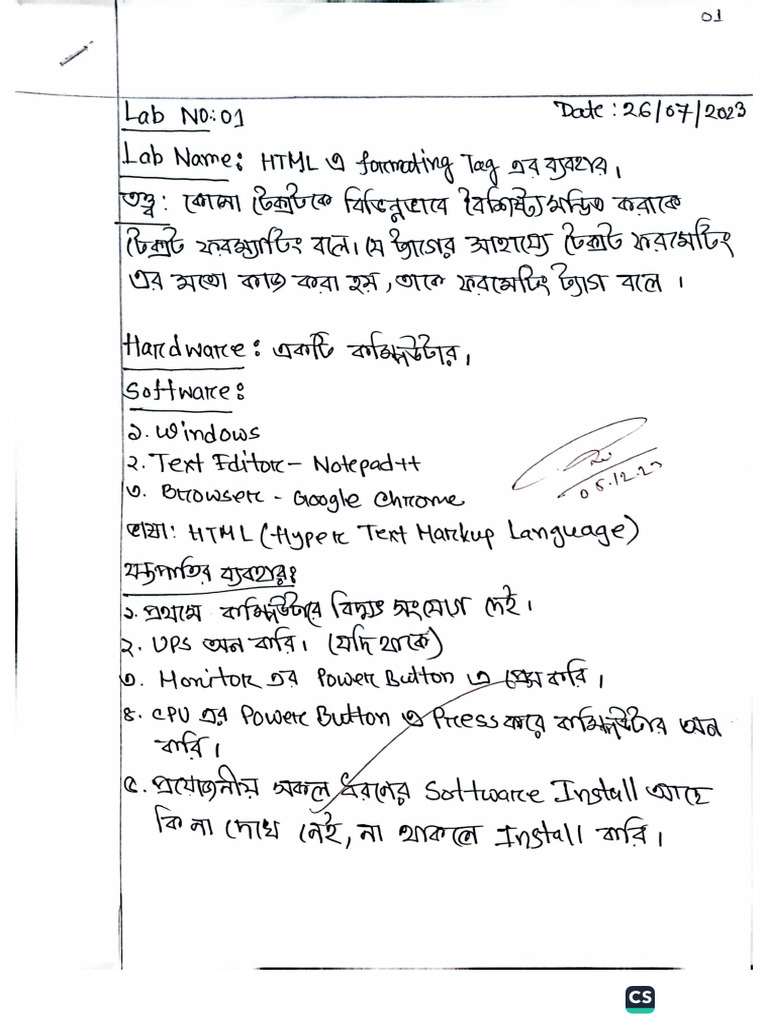 01
Lab No:01 Date: 26/07/2023
Lab Name: HTML এ formating Tag এর ব্যবহার।
তত্ত্ব: কোনো টেক্সটকে বিভিন্নভাবে বৈশিষ্ট্যমন্ডিত করাকে
টেক্সট ফরম্যাটিং বলে। যে ট্যাগের সাহায্যে টেক্সট ফরমেটিং
এর মতো কাজ করা হয়, তাকে ফরমেটিং ট্যাগ বলে।
Hardware: একটি কম্পিউটার।
Software:
১. Windows
২. Text Editor - Notepad++
৩. Browser - Google Chrome
05.12.23
ভাষা: HTML (Hyper Text Markup Language)
যন্ত্রপাতির ব্যবহার:
১. প্রথমে কম্পিউটারে বিদ্যুৎ সংযোগ দেই।
২. UPS অন করি। (যদি থাকে)
৩. Monitor এর Power Button এ প্রেস করি।
৪. CPU এর Power Button এ Press করে কম্পিউটার অন
করি।
৫. প্রয়োজনীয় সকল ধরণের Software Install আছে
কি না দেখে নেই, না থাকলে Install করি।
CS